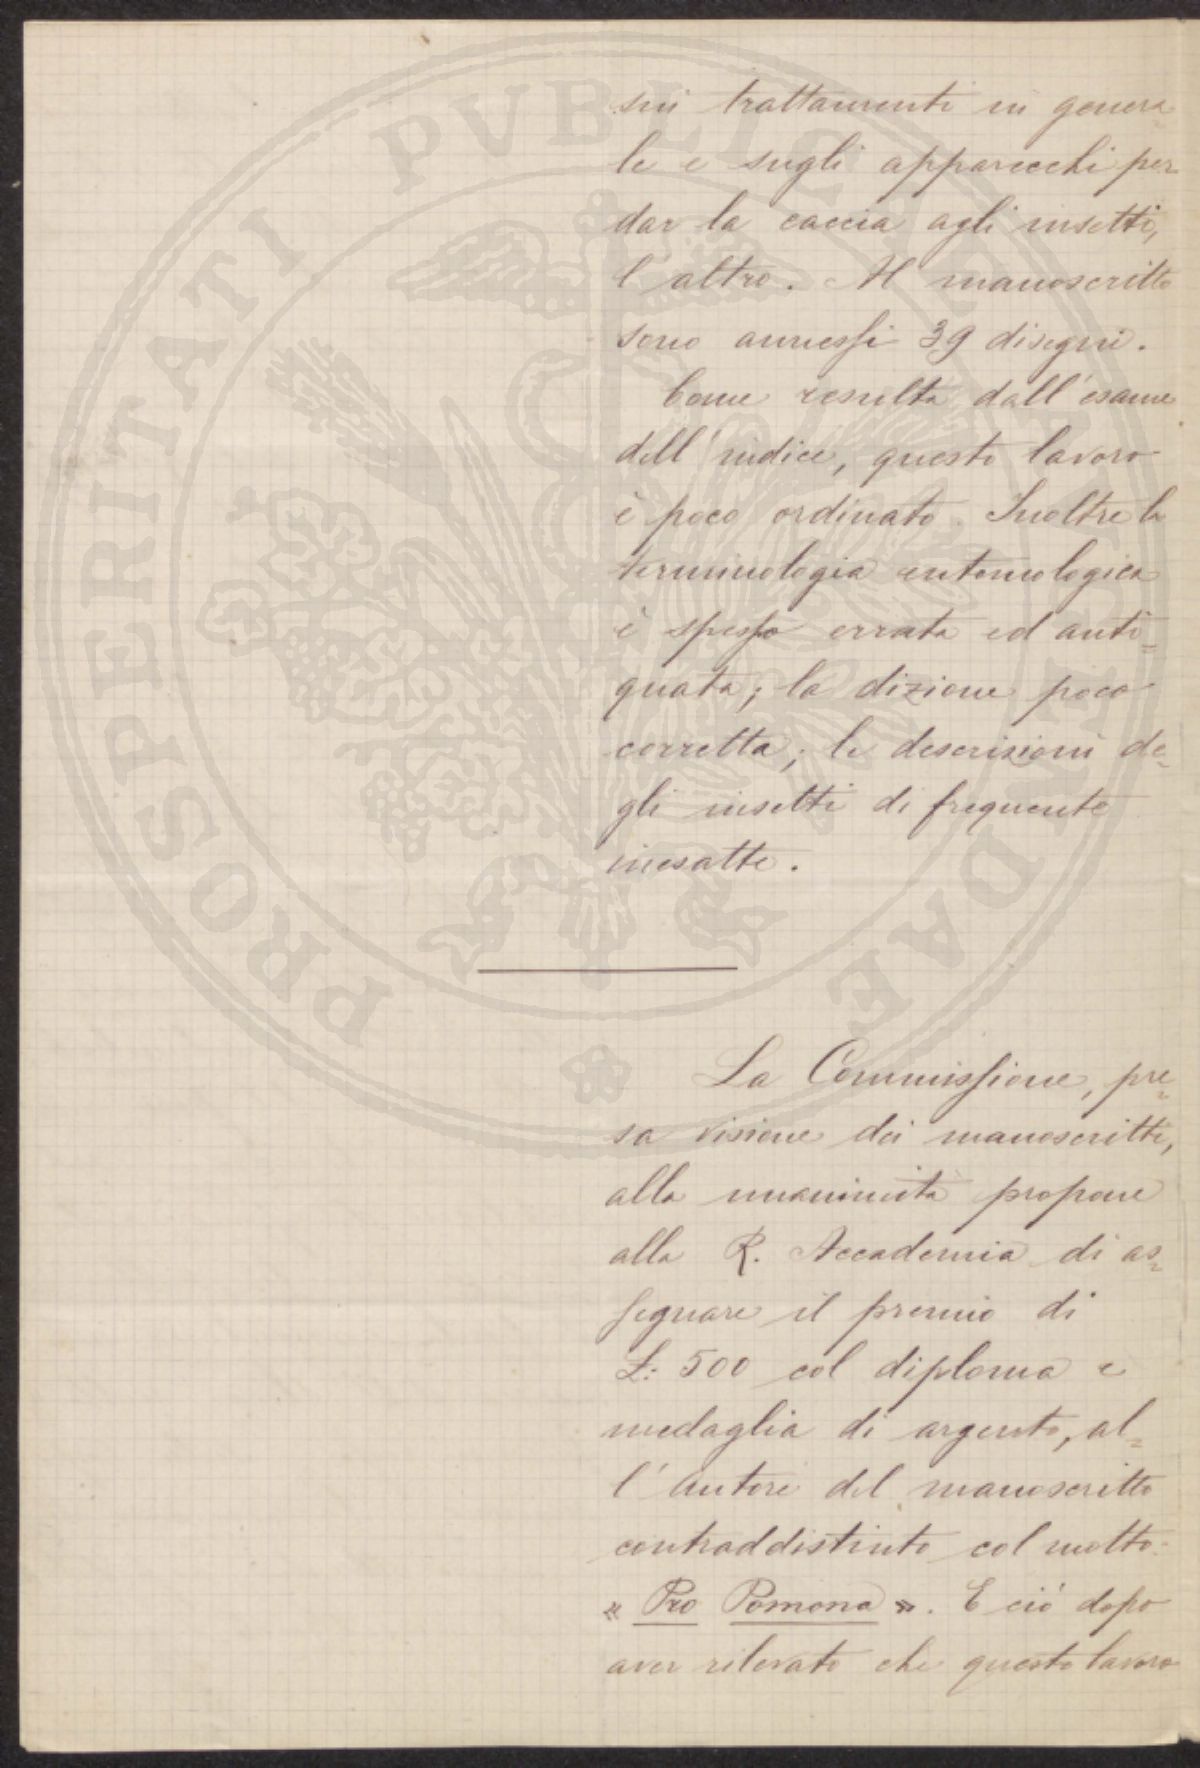 sui trattamenti in genera
le e sugli apparecchi per
dar la caccia agli insetti,
l'altro. Al manoscritto
sono annessi 39 disegni.
Come resulta dall'esame
dell'indice, questo lavoro
è poco ordinato. Inoltre la
terminologia entomologica
è spesso errata ed anti=
quata; la dizione poco
corretta; le descrizioni de=
gli insetti di frequente
inesatte.
La Commissione, pre=
sa visione dei manoscritti,
alla unanimità propone
alla R. Accademia di as=
segnare il premio di
L: 500 col diploma e
medaglia di argento, al=
l'autore del manoscritto
contraddistinto col motto:
« Pro Pomona ». E ciò dopo
aver rilevato che questo lavoro
PROSPERITATI PVBLICAE AVGENDAE